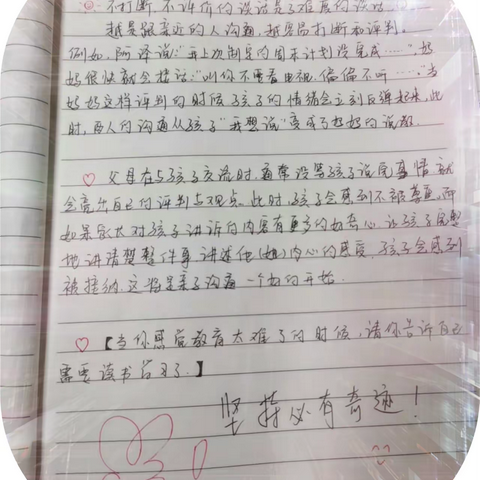 不打断、不评价的谈话是了难度的谈话
越是跟亲近的人沟通，越容易打断和评判。
例如，阿译说："我上次制定的周末计划没完成……"，妈
妈很快就会接话："叫你不要看电视，偏偏不听……"当
妈妈这样评判的时候，孩子的情绪会立刻反弹起来，此
时，两人的沟通从孩子"我想说"变成了妈妈的说教
♡ 父母在与孩子交流时，通常没等孩子说完事情就
会亮出自己的评判与观点。此时，孩子会感到不被尊重，而
如果家长对孩子讲诉的内容有更多的好奇心，让孩子完整
地讲清楚整件事，讲述他(她)内心的感受，孩子会感到
被接纳，这将是亲子沟通一个好的开始。
♡【当你感觉教育太难了的时候，请你告诉自己
需要读书学习了。】
坚持必有奇迹！